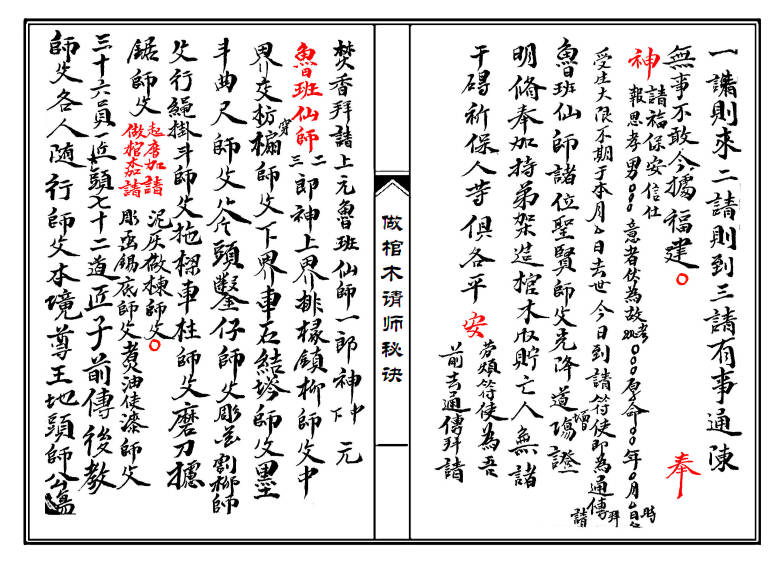 一請則來二請則到三請有事通陳
無事不敢今據福建〇 奉
神 請福保安信仕
報恩孝男〇〇〇意者伏為故 考妣 〇〇〇享命〇〇年〇月〇日 時
受生大限不期于本月〇日去世今日到請符使即為通傳 拜請
魯班仙師諸位聖賢師父克降道場 增 證
明修奉加持弟架造棺木收貯亡人無諸
干碍祈保人等俱各平安 劳煩符使為吾
前去通傳拜請
做棺木请师秘诀
焚香拜請上元魯班仙師一郎神中元
下
魯班仙師 二三 郎神上界排椽鎮柳師父中
界交枋 穿 榻師父下界車石結塔師父墨
斗曲尺師父斧頭鑿仔師父彫花割柳師
父行繩掛斗師父拖樑車柱師父磨刀
鋸師父 起厝加請
做棺木加請 泥灰做棟師父〇
彫香錫底師父煮油使漆師父
三十六員匠頭七十二道匠子前傳後教
師父各人随行師父本境尊王地頭師公